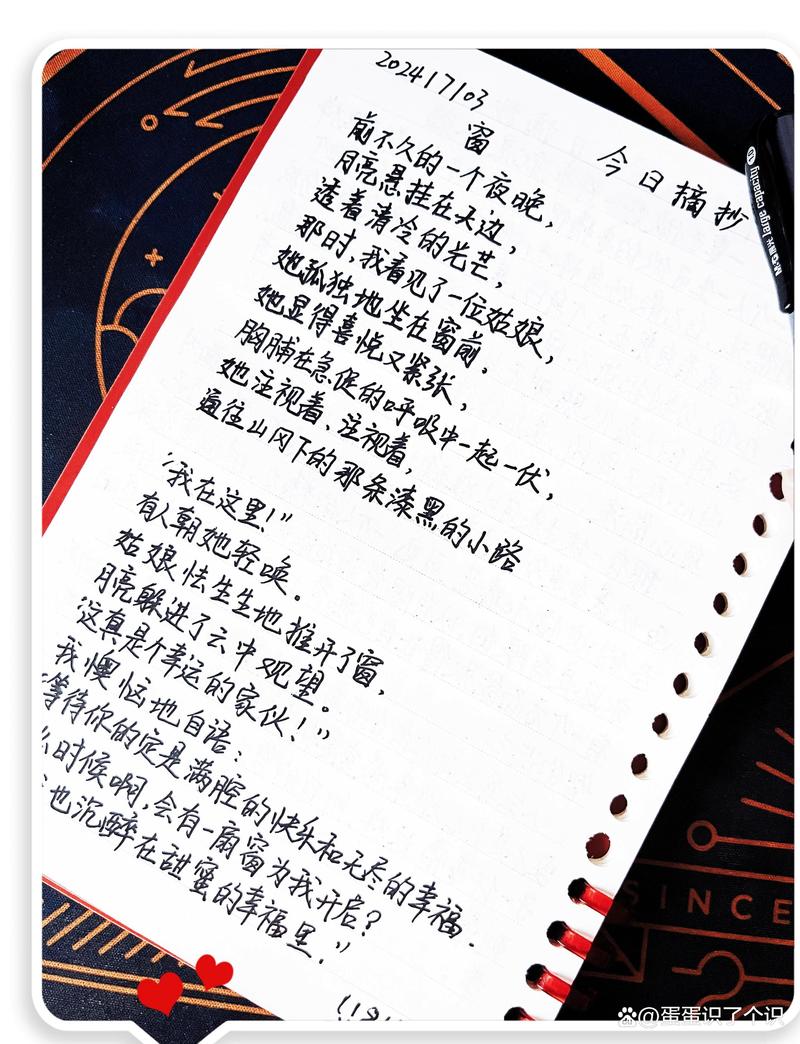 2024/7/03
窗
今日摘抄
前不久的一个夜晚,
月亮悬挂在天边,
透着清冷的光芒,
那时,我看见了一位姑娘,
她孤独地坐在窗前.
她显得喜悦又紧张,
胸脯在急促的呼吸中一起一伏,
她注视着、注视着,
通往山冈下的那条漆黑的小路
“我在这里!”
有人朝她轻唤。
姑娘怯生生地推开了窗,
月亮躲进了云中观望。
“这真是个幸运的家伙!”
我懊恼地自语:
等待你的定是满腔的快乐和无尽的幸福.
么时候啊,会有一扇窗为我开启?
也沉醉在甜蜜的幸福里.”
M&G 晨光 large capacity
SINCE
@蛋蛋识了个识